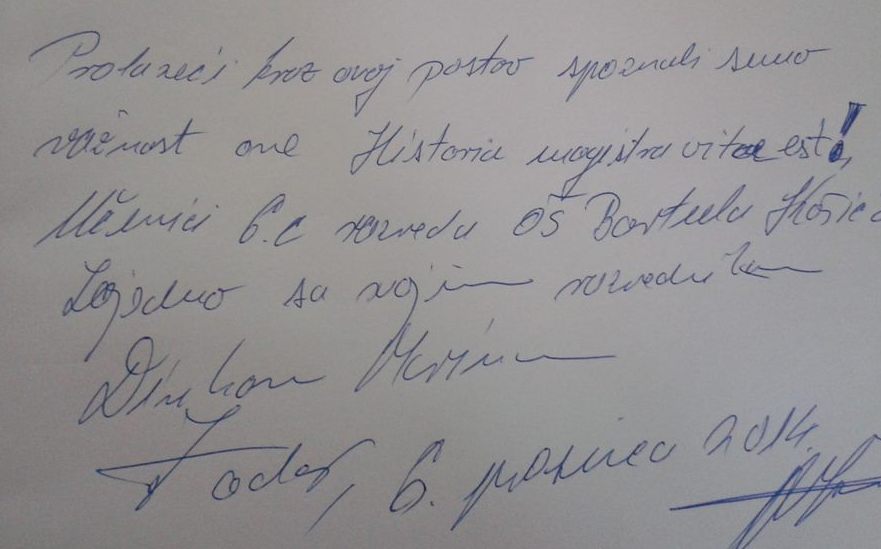 Prolazeći kroz ovaj postav spoznali smo
važnost one Historia magistra vitae est!
Učenici 6.c razreda OŠ Bartula Kašića
Zajedno sa svojim razrednikom
Zadar, 6. prosinca 2014.